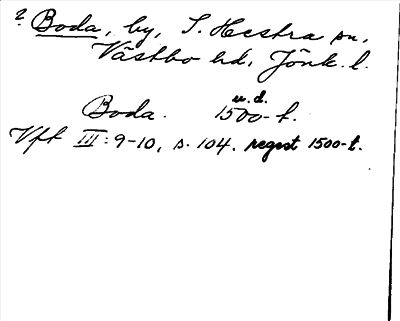 ? Boda, by, S. Hestra sn,
Västbo hd, Jönk. l.
u.d.
Boda. 1500-t.
Vft III: 9-10, s. 104. regest 1500-t.